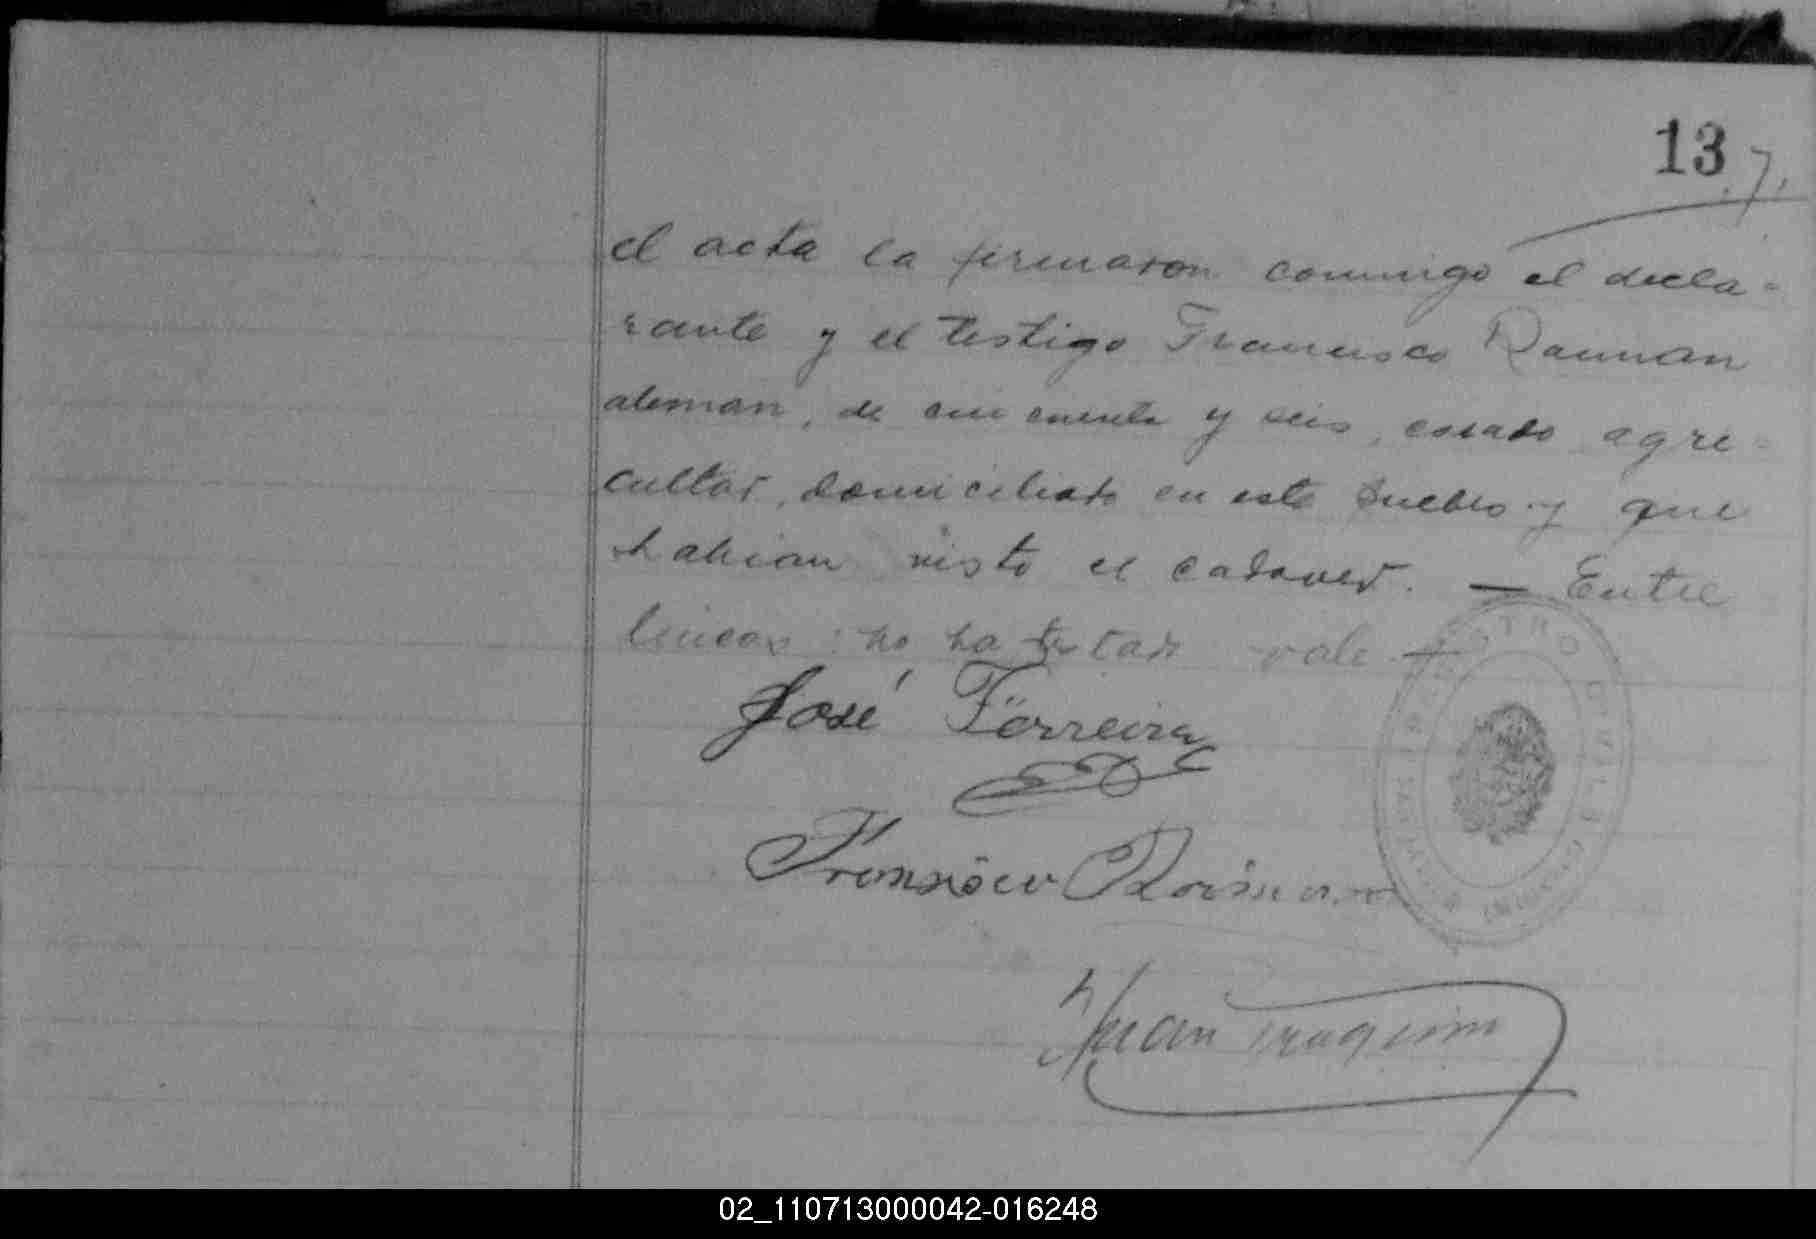 13
7.
el acta la firmaron conmigo el decla=
rante y el testigo Francisco Rauman
aleman, de cincuenta y seis, casado agri=
cultor, domiciliado en este pueblo y que
habian visto el cadaver. — Entre
lineas: no ha testar vale —
José Ferreira
Francisco
Juan
REGISTRO CIVIL
02_110713000042-016248